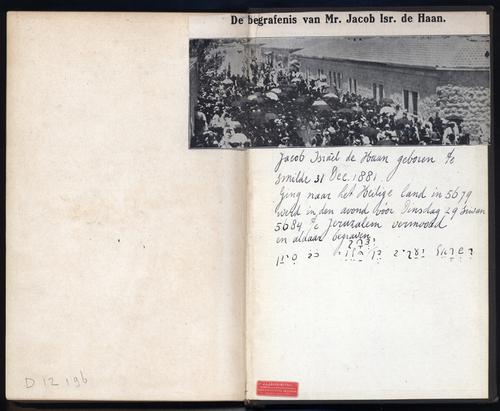 De begrafenis van Mr. Jacob Isr. de Haan.
Jacob Israël de Haan geboren te
Smilde 31 Dec. 1881.
Ging naar het Heilige land in 5679
werd in den avond vóór Dinsdag 29 Siwan
5684 te Jeruzalem vermoord
en aldaar begraven
D 12 196